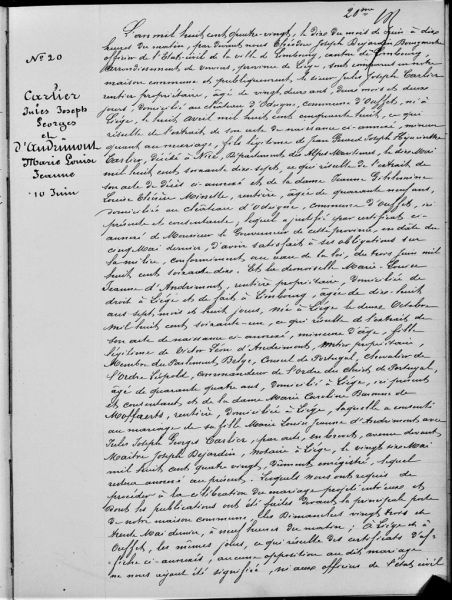 20me
N° 20
Cartier
Jules Joseph
Georges
et
d'Andrimont
Marie Louise
Jeanne
10 Juin
L'an mil huit cent quatre-vingt, le dix du mois de Juin à dix
heures du matin, par devant nous Théodore Joseph Dejardin Bourgmestre
officier de l'Etat-civil de la ville de Limbourg, canton de Limbourg,
arrondissement de Verviers, province de Liége, sont comparus en notre
maison commune et publiquement, le sieur Jules Joseph Cartier
rentier propriétaire, âgé de vingt deux ans, deux mois et deux
jours, domicilié au château d'Odeigne, commune d'Ouffet, né à
Liége, le huit avril mil huit cent cinquante huit, ce qui
résulte de l'extrait de son acte de naissance ci-annexé, mineur
quant au mariage, fils légitime de Jean
Cartier, décédé à Nice, Département des Alpes Maritimes, le dix Mai
mil huit cent soixante dix sept, ce qui résulte de l'extrait de
son acte de décès ci-annexé et de la dame Jeanne
Louise, rentière, âgée de quarante neuf ans,
domiciliée au château d'Odeigne, commune d'Ouffet, ici
présente et consentante, lequel a justifié par certificat ci-
annexé de Monsieur le Gouverneur de cette province, en date du
cinq Mai dernier, d'avoir satisfait à ses obligations sur
la milice, conformément au vœu de la loi, du trois Juin mil
huit cent soixante dix. Et la demoiselle Marie Louise
Jeanne d'Andrimont, rentière propriétaire, domiciliée de
droit à Liége et de fait à Limbourg, âgée de dix-huit
ans, sept mois et huit jours, née à Liége le deux Octobre
mil huit cent soixante-un, ce qui résulte de l'extrait de
son acte de naissance ci-annexé, mineure d'âge, fille
légitime de Victor Léon d'Andrimont, propriétaire,
Membre du Parlement Belge, Consul de Portugal, Chevalier de
l'Ordre Léopold, Commandeur de l'Ordre du Christ de Portugal,
âgé de quarante quatre ans, domicilié à Liége, ici présent
et consentant, et de la dame Marie Caroline Baronne de
Moffaerts, rentière, domiciliée à Liége, laquelle a consenti
au mariage de sa fille Marie Louise Jeanne d'Andrimont avec
Jules Joseph Georges Cartier, par acte, en brevet, avenu devant
Maître Joseph Dejardin, notaire à Liége, le vingt six Mai
mil huit cent quatre vingt, dûment enregistré, lequel
restera annexé au présent. Lesquels nous ont requis de
procéder à la célébration du mariage projeté entre eux et
dont les publications ont été faites devant la principale porte
de notre maison commune, les Dimanches vingt trois et
trente Mai dernier, à neuf heures du matin; à Liége et à
Ouffet, les mêmes jours, ce qui résulte des certificats d'af-
fiche ci-annexés, aucune opposition au dit mariage
ne nous ayant été signifiée, ni aux officiers de l'état civil